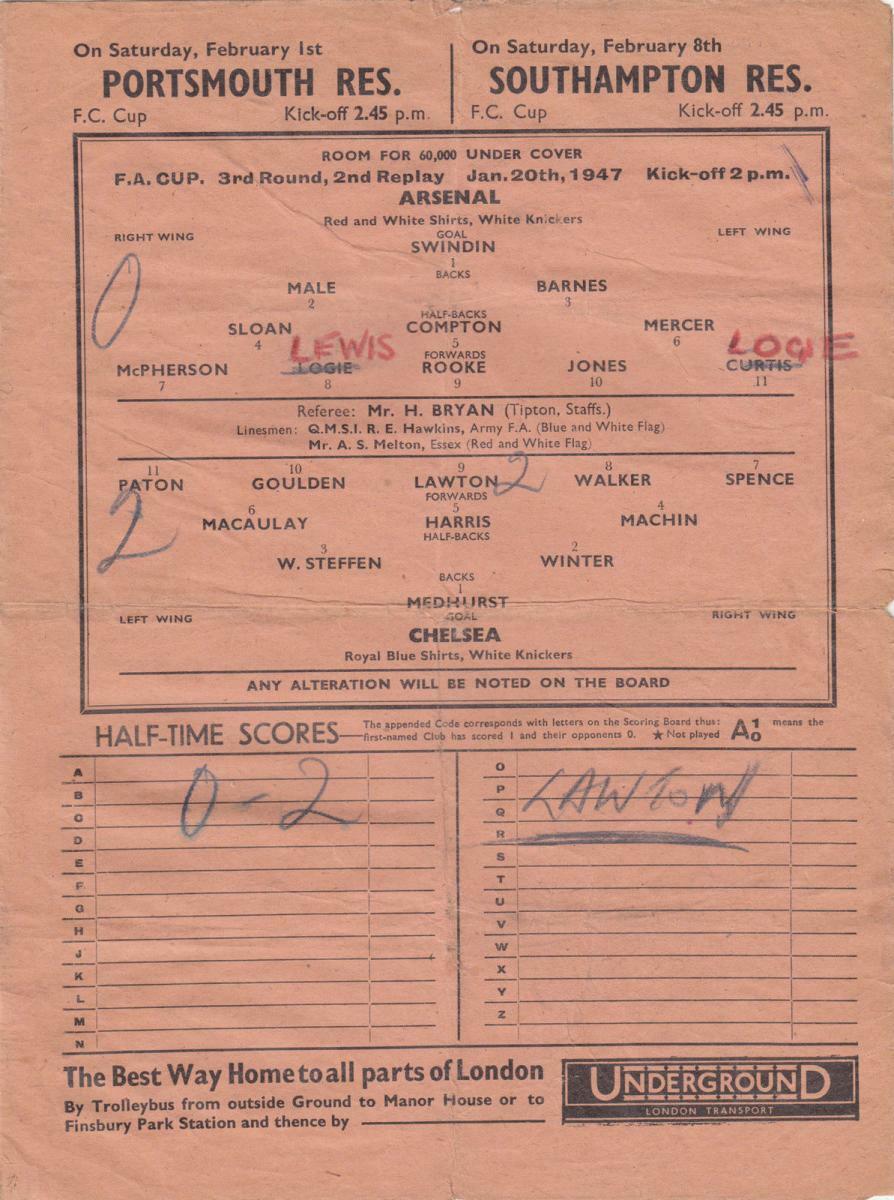 On Saturday, February 1st
PORTSMOUTH RES.
F.C. Cup Kick-off 2.45 p.m.
On Saturday, February 8th
SOUTHAMPTON RES.
F.C. Cup Kick-off 2.45 p.m.
ROOM FOR 60,000 UNDER COVER
F.A. CUP. 3rd Round, 2nd Replay Jan. 20th, 1947 Kick-off 2 p.m.
ARSENAL
Red and White Shirts, White Knickers
RIGHT WING GOAL LEFT WING
SWINDIN
1
BACKS
0
MALE BARNES
2 3
HALF-BACKS
SLOAN COMPTON MERCER
4 5 6
LEWIS LOGIE
FORWARDS
McPHERSON LOGIE ROOKE JONES CURTIS
7 8 9 10 11
Referee: Mr. H. BRYAN (Tipton, Staffs.)
Linesmen: Q.M.S.I. R. E. Hawkins, Army F.A. (Blue and White Flag)
Mr. A. S. Melton, Essex (Red and White Flag)
11 10 9 8 7
PATON GOULDEN LAWTON 2 WALKER SPENCE
FORWARDS
2
6 5 4
MACAULAY HARRIS MACHIN
HALF-BACKS
3 2
W. STEFFEN WINTER
BACKS
1
MEDHURST
LEFT WING GOAL RIGHT WING
CHELSEA
Royal Blue Shirts, White Knickers
ANY ALTERATION WILL BE NOTED ON THE BOARD
HALF-TIME SCORES
The appended Code corresponds with letters on the Scoring Board thus: A 1 0 means the
first-named Club has scored 1 and their opponents 0. ★ Not played
A
B
C
D
E
F
G
H
J
K
L
M
N
0 - 2
O
P
Q
R
S
T
U
V
W
X
Y
Z
LAWTON
The Best Way Home to all parts of London
By Trolleybus from outside Ground to Manor House or to
Finsbury Park Station and thence by
UNDERGROUND
LONDON TRANSPORT